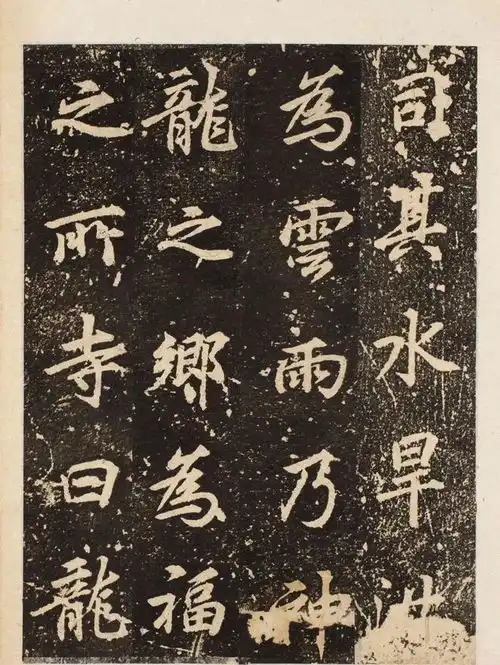 司其水旱
為雲雨乃神
龍之鄉為福
之所寺曰龍